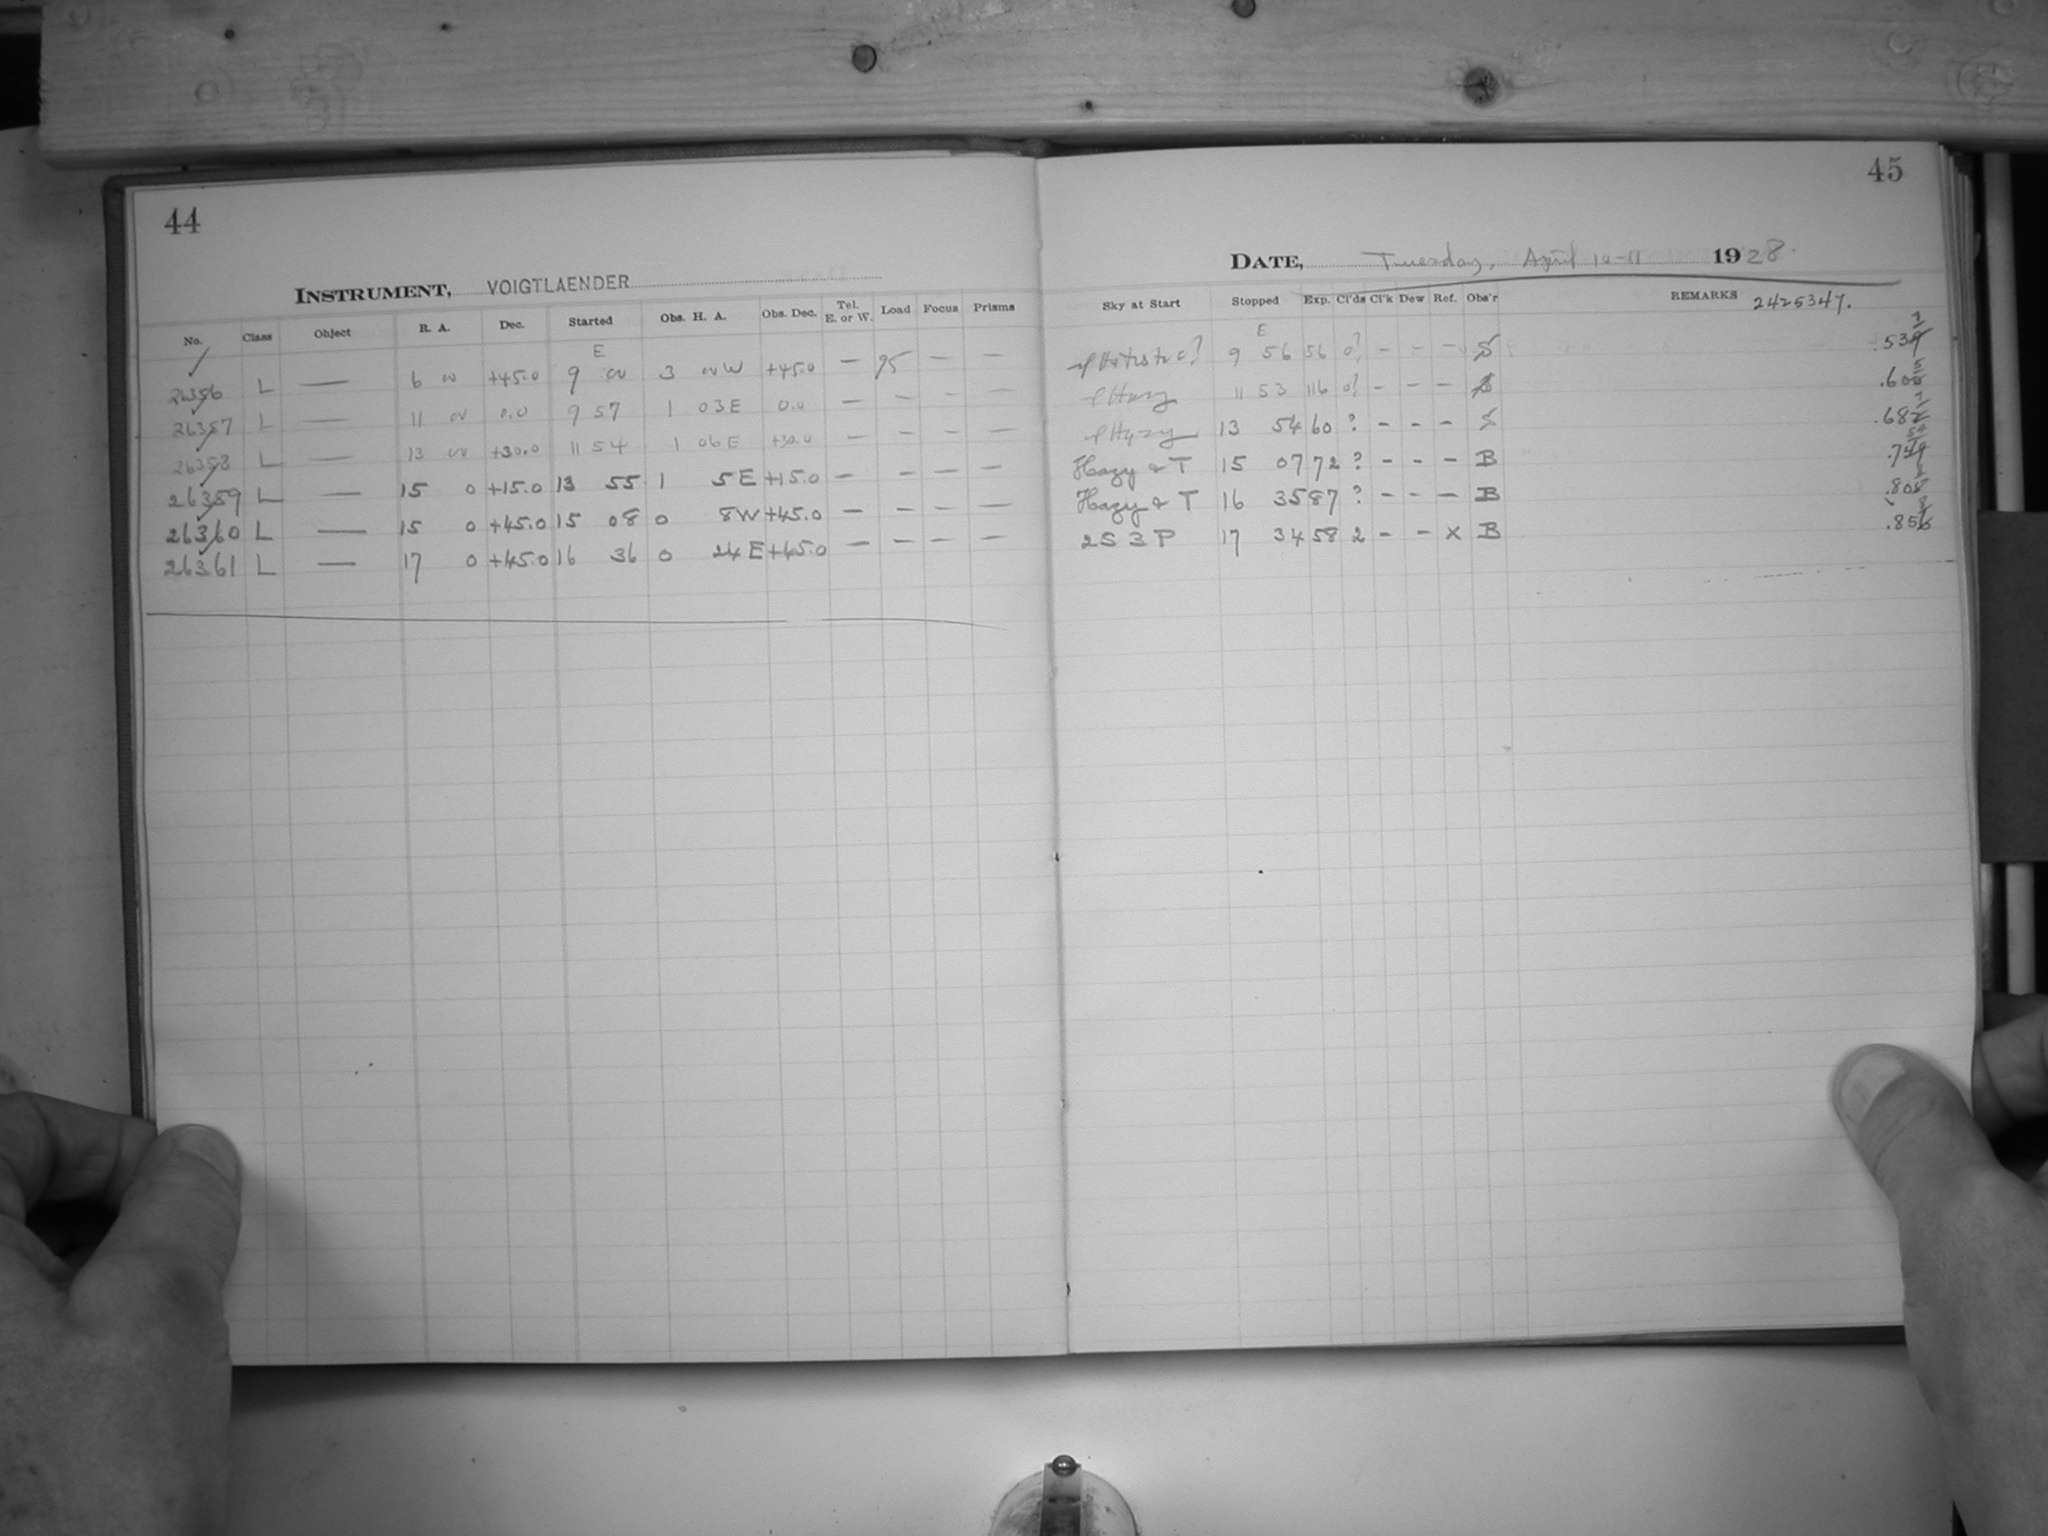 44
INSTRUMENT, VOIGTLAENDER
No. Class Object R. A. Dec. Started Obs. H. A. Obs. Dec. Tel. E. or W. Load Focus Prisms
E
26356 L — 6 +45.0 9 3 W +45.0 — 95 — —
26357 L — 11 0.0 9 57 1 03E 0.0 — — — —
26358 L — 13 +30.0 11 54 1 06E +30.0 — — — —
26359 L — 15 0 +15.0 13 55 1 5E +15.0 — — — —
26360 L — 15 0 +45.0 15 08 0 8W +45.0 — — — —
26361 L — 17 0 +45.0 16 36 0 24E +45.0 — — — —
45
DATE, Tuesday, April 10-11 1928.
Sky at Start Stopped Exp. Cl'ds Cl'k Dew Ref. Obs'r REMARKS 2425347.
E
9 56 56 0? - - - S
Hazy 11 53 116 0? - - - S
Hazy 13 54 60 ? - - - S
Hazy & T 15 07 72 ? - - - B
Hazy & T 16 35 87 ? - - - B
2S 3P 17 34 58 2 - - x B